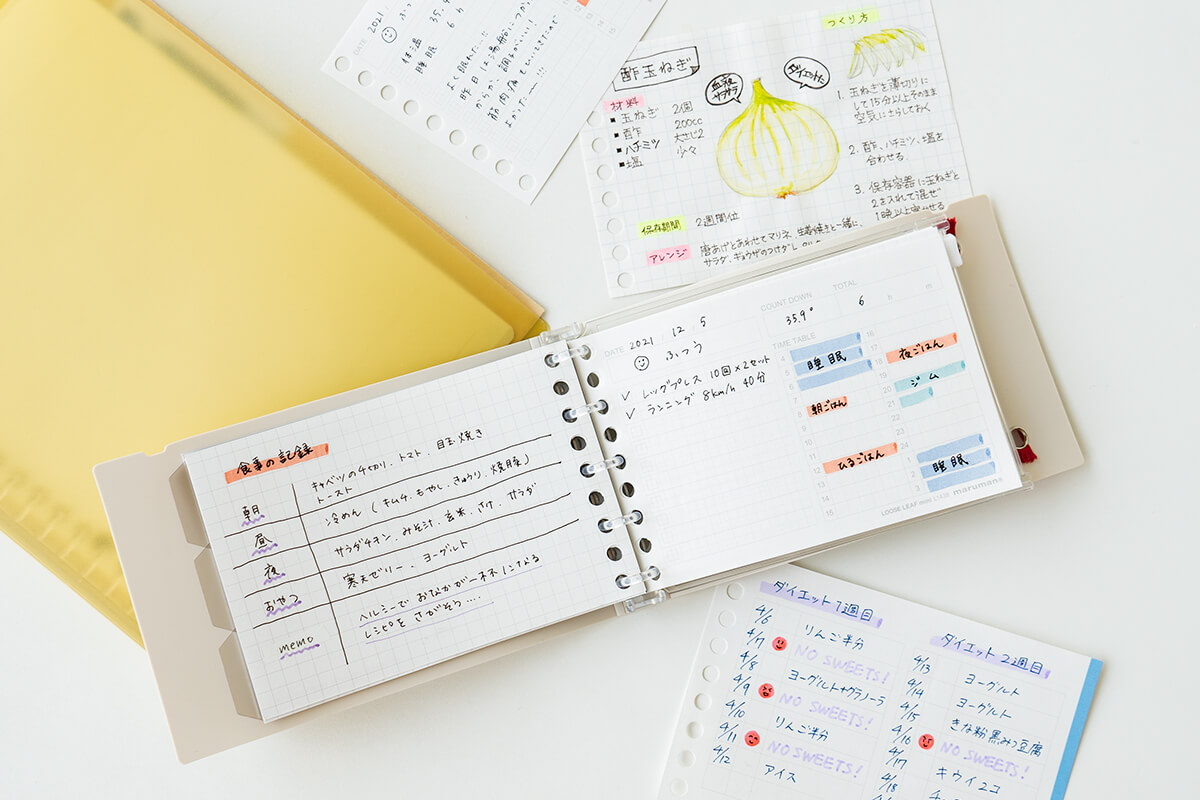 DATE 2021
ふつ
体温 35.4
睡眠 6h
よく眠れた!!
酢玉ねぎ
血液サラサラ
ダイエットに
材料
■ 玉ねぎ 2個
■ 酢 200cc
■ ハチミツ 大さじ2
■ 塩 少々
つくり方
1. 玉ねぎを薄切りに
して15分以上そのまま
空気にさらしておく
2. 酢、ハチミツ、塩を
合わせる.
3. 保存容器に玉ねぎと
2を入れて混ぜ
1晩以上寝かせる
保存期間 2週間位
アレンジ 唐あげとあわせてマリネ、生姜焼きと一緒に、
サラダ、ギョウザのつけダレ
食事の記録
朝 キャベツの千切り、トマト、目玉焼き
トースト
昼 冷めん(キムチ、もやし、きゅうり、焼豚)
夜 サラダチキン、みそ汁、玄米、さけ、サラダ
おやつ 寒天ゼリー、ヨーグルト
memo ヘルシーで おなかが一杯になる
レシピを さがそう....
DATE 2021 12 5
ふつう
✓ レッグプレス 10回×2セット
✓ ランニング 8km/h 40分
COUNT DOWN
35.9°
TOTAL
6 h m
TIME TABLE
4
5
6
7
8
9
10
11
12
13
14
15
睡眠
朝ごはん
ひるごはん
16
17
18
19
20
21
22
23
24
1
2
3
夜ごはん
ジム
睡眠
LOOSE LEAF mini maruman
ダイエット1週目
4/6 りんご半分
4/7 NO SWEETS!
4/8 ヨーグルト+グラノーラ
4/9 NO SWEETS!
4/10 りんご半分
4/11 NO SWEETS!
4/12 アイス
ダイエット2週目
4/13 ヨーグルト
4/14 ヨーグルト
4/15 きな粉黒みつ豆腐
4/16 NO SWEETS!
4/17 キウイ2コ
4/18